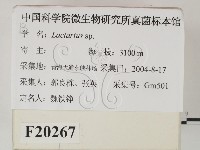 中国科学院微生物研究所真菌标本馆
学名: Lactarius sp.
寄主: 海拔: 3100m
采集地: 采集日: 2004-8-17
采集人: 郭良栋、张英 采集号: Gm501
定名人: 魏铁铮
F20267